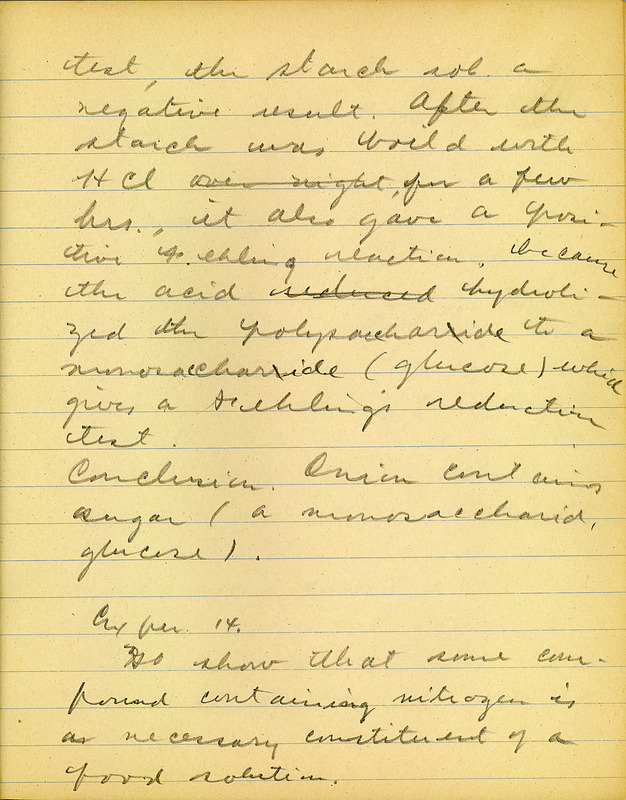 test, the starch sol. a
negative result. After the
starch was boild with
HCl over night, for a few
hrs., it also gave a posi-
tive Fehling reaction, because
the acid reduced hydroli-
zed the polysaccharide to a
monosaccharide (glucose) which
gives a Fehlings reduction
test.
Conclusion. Onion contains
sugar (a monosaccharid,
glucose).
Exper. 14.
To show that some com-
pound containing nitrogen is
a necessary constituent of a
food solution.